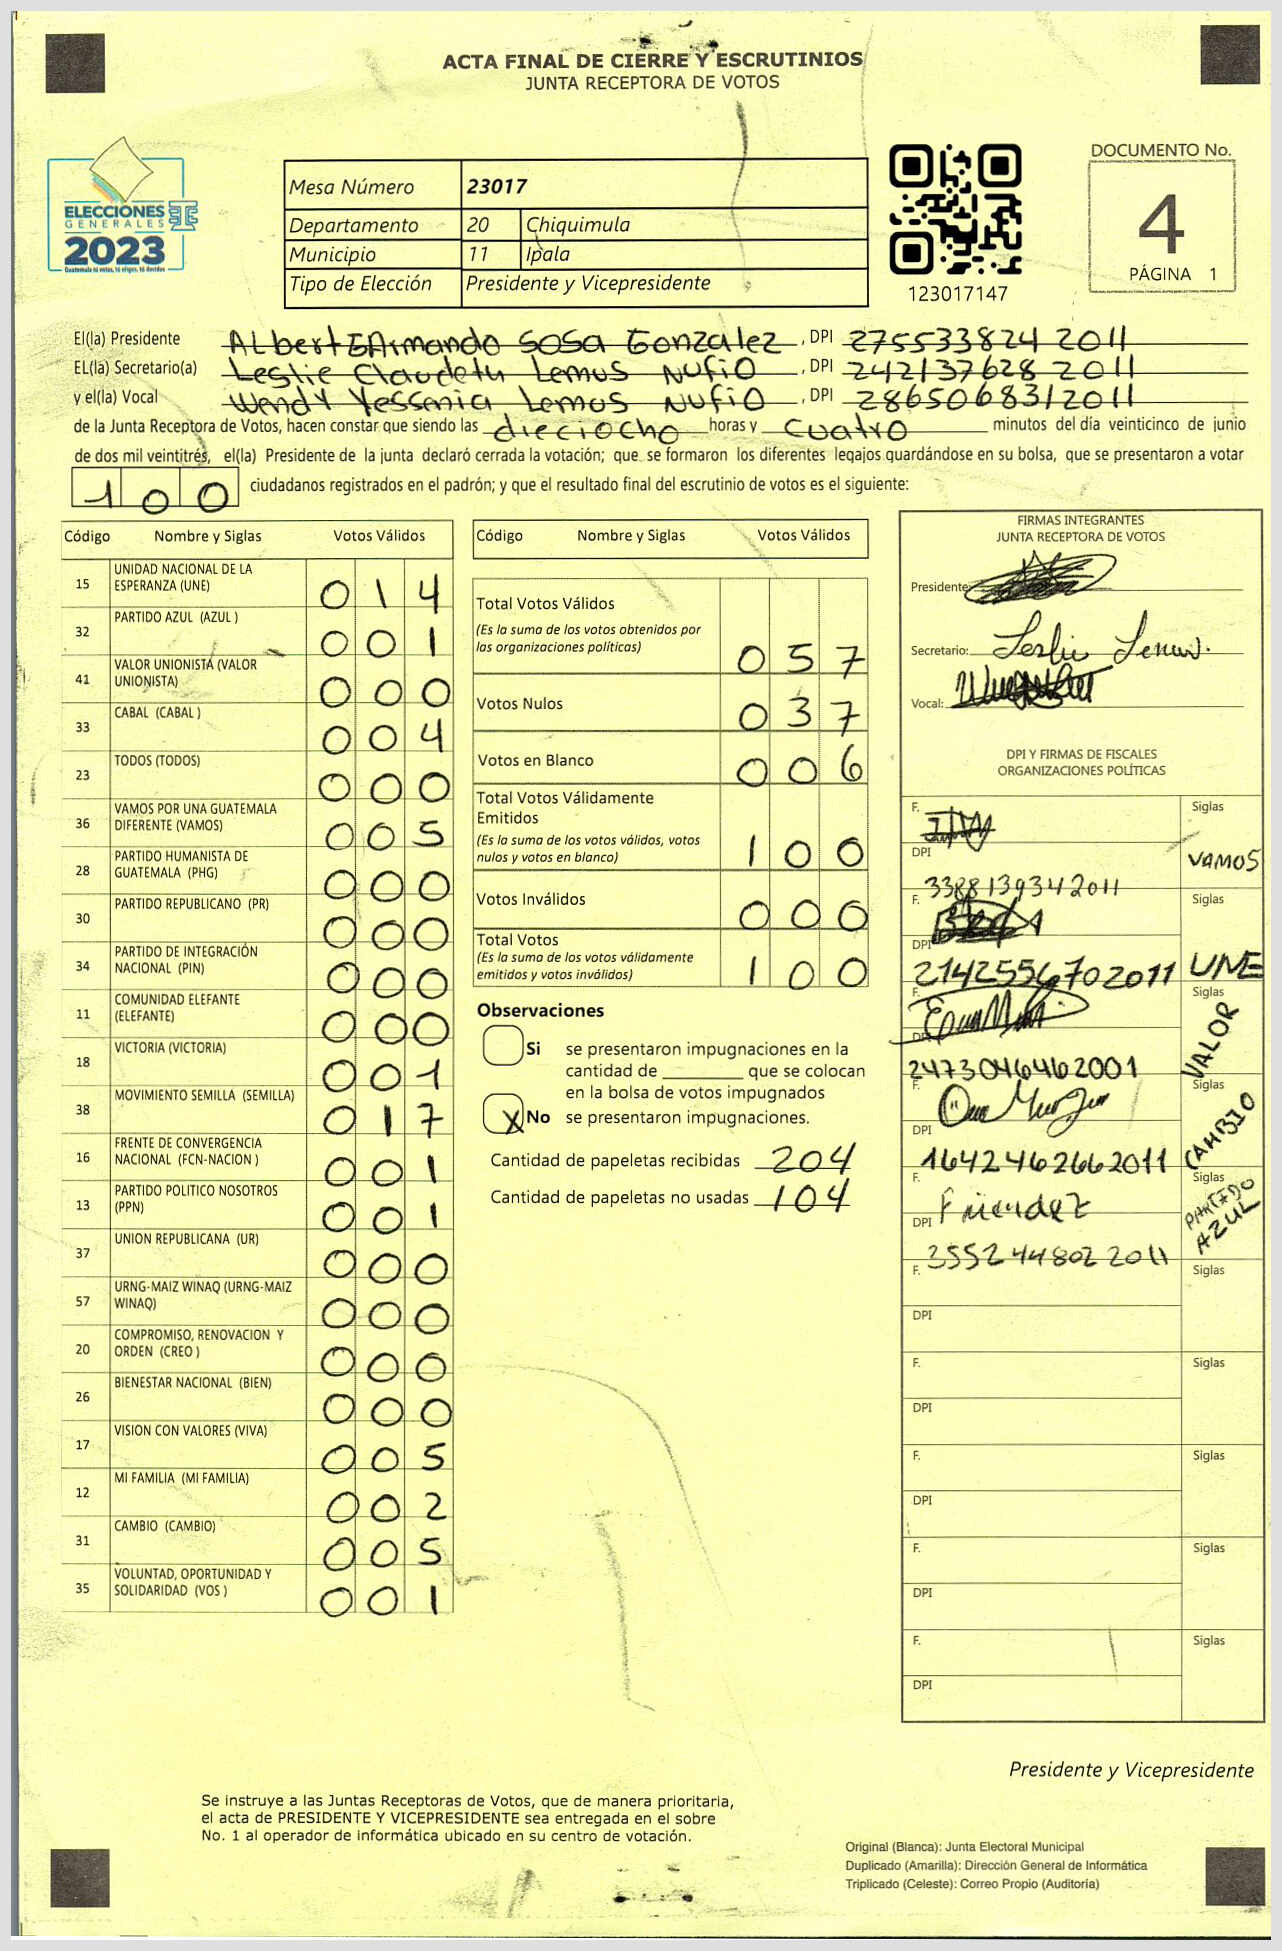 ACTA FINAL DE CIERRE Y ESCRUTINIOS
JUNTA RECEPTORA DE VOTOS
ELECCIONES
GENERALES
2023
Guatemala tú votas, tú eliges, tú decides
Mesa Número 23017
Departamento 20 Chiquimula
Municipio 11 Ipala
Tipo de Elección Presidente y Vicepresidente
123017147
DOCUMENTO No.
4
PÁGINA 1
El(la) Presidente Albert Armando Sosa Gonzalez, DPI 275533824 2011
EL(la) Secretario(a) Leslie Claudeth Lemus Nufio, DPI 242137628 2011
y el(la) Vocal Wendy Yessenia Lemus Nufio, DPI 286506831 2011
de la Junta Receptora de Votos, hacen constar que siendo las dieciocho horas y cuatro minutos del día veinticinco de junio
de dos mil veintitrés, el(la) Presidente de la junta declaró cerrada la votación; que se formaron los diferentes legajos guardándose en su bolsa, que se presentaron a votar
100 ciudadanos registrados en el padrón; y que el resultado final del escrutinio de votos es el siguiente:
Código Nombre y Siglas Votos Válidos
15 UNIDAD NACIONAL DE LA ESPERANZA (UNE) 014
32 PARTIDO AZUL (AZUL ) 001
41 VALOR UNIONISTA (VALOR UNIONISTA) 000
33 CABAL (CABAL ) 004
23 TODOS (TODOS) 000
36 VAMOS POR UNA GUATEMALA DIFERENTE (VAMOS) 005
28 PARTIDO HUMANISTA DE GUATEMALA (PHG) 000
30 PARTIDO REPUBLICANO (PR) 000
34 PARTIDO DE INTEGRACIÓN NACIONAL (PIN) 000
11 COMUNIDAD ELEFANTE (ELEFANTE) 000
18 VICTORIA (VICTORIA) 001
38 MOVIMIENTO SEMILLA (SEMILLA) 017
16 FRENTE DE CONVERGENCIA NACIONAL (FCN-NACION ) 001
13 PARTIDO POLITICO NOSOTROS (PPN) 001
37 UNION REPUBLICANA (UR) 000
57 URNG-MAIZ WINAQ (URNG-MAIZ WINAQ) 000
20 COMPROMISO, RENOVACION Y ORDEN (CREO ) 000
26 BIENESTAR NACIONAL (BIEN) 000
17 VISION CON VALORES (VIVA) 005
12 MI FAMILIA (MI FAMILIA) 002
31 CAMBIO (CAMBIO) 005
35 VOLUNTAD, OPORTUNIDAD Y SOLIDARIDAD (VOS ) 001
Código Nombre y Siglas Votos Válidos
Total Votos Válidos
(Es la suma de los votos obtenidos por
las organizaciones políticas) 057
Votos Nulos 037
Votos en Blanco 006
Total Votos Válidamente
Emitidos
(Es la suma de los votos válidos, votos
nulos y votos en blanco) 100
Votos Inválidos 000
Total Votos
(Es la suma de los votos válidamente
emitidos y votos inválidos) 100
Observaciones
Si se presentaron impugnaciones en la
cantidad de ________ que se colocan
en la bolsa de votos impugnados
X No se presentaron impugnaciones.
Cantidad de papeletas recibidas 204
Cantidad de papeletas no usadas 104
FIRMAS INTEGRANTES
JUNTA RECEPTORA DE VOTOS
Presidente:
Secretario: Leslie Lemus.
Vocal:
DPI Y FIRMAS DE FISCALES
ORGANIZACIONES POLÍTICAS
F. Siglas
DPI 3388139342011 VAMOS
F. Siglas
DPI 2142556702011 UNE
F. Siglas
DPI 2473046462001 VALOR
F. Siglas
DPI 1642462662011 CAMBIO
F. Siglas
DPI 3552448022011 PARTIDO AZUL
F. Siglas
DPI
F. Siglas
DPI
F. Siglas
DPI
F. Siglas
DPI
F. Siglas
DPI
Presidente y Vicepresidente
Se instruye a las Juntas Receptoras de Votos, que de manera prioritaria,
el acta de PRESIDENTE Y VICEPRESIDENTE sea entregada en el sobre
No. 1 al operador de informática ubicado en su centro de votación.
Original (Blanca): Junta Electoral Municipal
Duplicado (Amarilla): Dirección General de Informática
Triplicado (Celeste): Correo Propio (Auditoría)